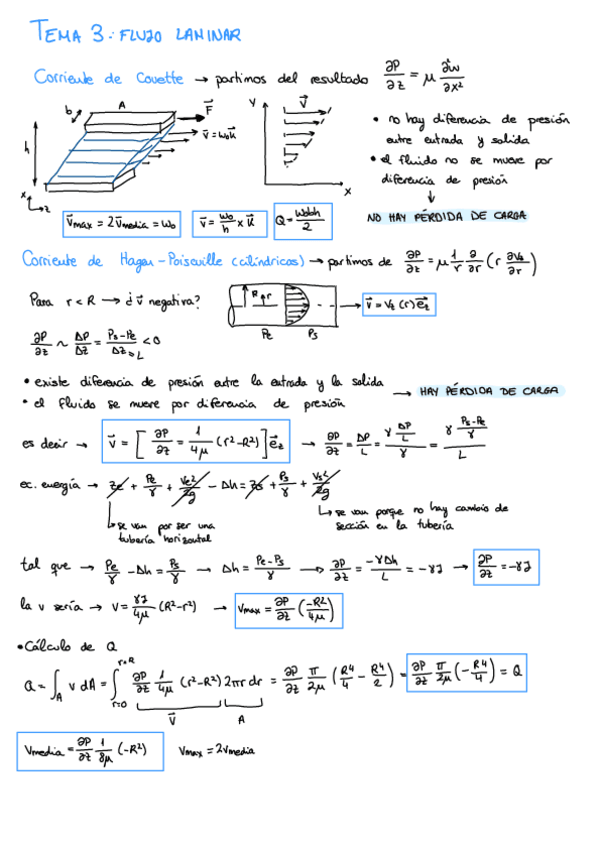 TEMA 3: FLUJO LAMINAR
Corriente de Couette → partimos del resultado ∂P/∂z = μ ∂²w/∂x²
b A F⃗ v⃗ = w₀k⃗ h x z
y v⃗ x
• no hay diferencia de presión entre entrada y salida
• el fluido no se mueve por diferencia de presión
↓
NO HAY PÉRDIDA DE CARGA
v⃗max = 2v⃗media = w₀
v⃗ = w₀/h x k⃗
Q = w₀bh/2
Corriente de Hagen-Poiseuille (cilíndricas) → partimos de ∂P/∂z = μ 1/r ∂/∂r (r ∂v₂/∂r)
Para r < R → ¿ v⃗ negativa?
R r Pe Ps
→ v⃗ = v₂ (r) e⃗z
∂P/∂z ~ ΔP/Δz = Ps-Pe/Δz=L < 0
• existe diferencia de presión entre la entrada y la salida
• el fluido se mueve por diferencia de presión
→ HAY PÉRDIDA DE CARGA
es decir → v⃗ = [∂P/∂z = 1/4μ (r²-R²)] e⃗z → ∂P/∂z = ΔP/L = γ ΔP/L / γ = γ Ps-Pe/γ / L
ec. energía → ze + Pe/γ + ve²/2g - Δh = zs + Ps/γ + vs²/2g
se van por ser una tubería horizontal
se van porque no hay cambio de sección en la tubería
tal que → Pe/γ - Δh = Ps/γ → Δh = Pe-Ps/γ → ∂P/∂z = -γΔh/L = -γJ → ∂P/∂z = -γJ
la v sería → v = γJ/4μ (R²-r²) → vmax = ∂P/∂z (-R²/4μ)
• Cálculo de Q
Q = ∫A v dA = ∫r=0 r=R ∂P/∂z 1/4μ (r²-R²) 2πr dr = ∂P/∂z π/2μ (R⁴/4 - R⁴/2) = ∂P/∂z π/2μ (-R⁴/4) = Q
v⃗ A
Vmedia = ∂P/∂z 1/8μ (-R²)
Vmax = 2Vmedia